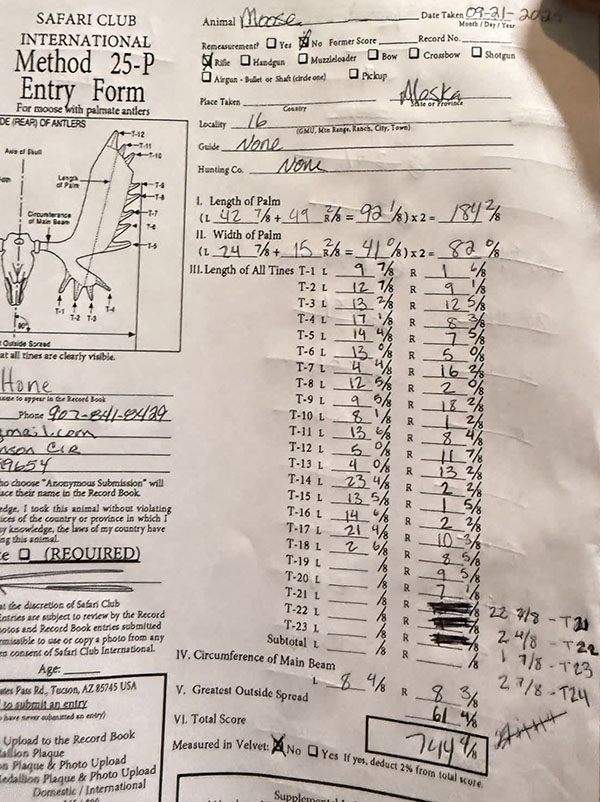 SAFARI CLUB
INTERNATIONAL
Method 25-P
Entry Form
For moose with palmate antlers
DE (REAR) OF ANTLERS
Axis of Skull
Length of Palm
Circumference of Main Beam
T-12
T-11
T-10
T-9
T-8
T-7
T-6
T-5
T-1 T-2 T-3 T-4
90°
Outside Spread
at all tines are clearly visible.
Hone
ame to appear in the Record Book
Phone 907-841-8429
gmail.com
nson CIR
99654
ho choose "Anonymous Submission" will
ace their name in the Record Book.
edge, I took this animal without violating
ices of the country or province in which I
y knowledge, the laws of my country have
ng this animal.
e ☐ (REQUIRED)
at the discretion of Safari Club
Entries are subject to review by the Record
otos and Record Book entries submitted
rmissible to use or copy a photo from any
en consent of Safari Club International.
Age:
ates Pass Rd., Tucson, AZ 85745 USA
to submit an entry
have never submitted an entry)
Upload to the Record Book
allion Plaque
on Plaque & Photo Upload
Medallion Plaque & Photo Upload
Domestic / International
Animal Moose Date Taken 09-21-20
Month / Day / Year
Remeasurement? ☐ Yes ☒ No Former Score Record No.
☒ Rifle ☐ Handgun ☐ Muzzleloader ☐ Bow ☐ Crossbow ☐ Shotgun
☐ Airgun - Bullet or Shaft (circle one) ☐ Pickup
Place Taken Alaska
Country State or Province
Locality 16
(GMU, Mtn Range, Ranch, City, Town)
Guide None
Hunting Co. None
I. Length of Palm
(L 42 7/8 + 49 2/8 = 92 1/8) x 2 = 184 2/8
II. Width of Palm
(L 24 7/8 + 15 2/8 = 41 0/8) x 2 = 82 0/8
III. Length of All Tines T-1 L 9 7/8 R 1 6/8
T-2 L 12 7/8 R 9 1/8
T-3 L 13 2/8 R 12 5/8
T-4 L 17 1/8 R 8 3/8
T-5 L 14 4/8 R 7 5/8
T-6 L 13 0/8 R 5 0/8
T-7 L 4 4/8 R 16 2/8
T-8 L 12 5/8 R 2 0/8
T-9 L 9 5/8 R 18 2/8
T-10 L 8 1/8 R 1 2/8
T-11 L 13 6/8 R 8 4/8
T-12 L 5 0/8 R 11 7/8
T-13 L 4 0/8 R 13 2/8
T-14 L 23 4/8 R 2 2/8
T-15 L 13 5/8 R 1 5/8
T-16 L 14 6/8 R 2 2/8
T-17 L 21 4/8 R 10 3/8
T-18 L 2 6/8 R 8 5/8
T-19 L /8 R 9 5/8
T-20 L /8 R 7 1/8
T-21 L /8 R /8 22 3/8 - T21
T-22 L /8 R /8 2 4/8 - T22
T-23 L /8 R /8 1 7/8 - T23
Subtotal L /8 R /8 2 7/8 - T24
IV. Circumference of Main Beam
L 8 4/8 R 8 3/8
V. Greatest Outside Spread 61 4/8
VI. Total Score 744 4/8
Measured in Velvet: ☒ No ☐ Yes If yes, deduct 2% from total score